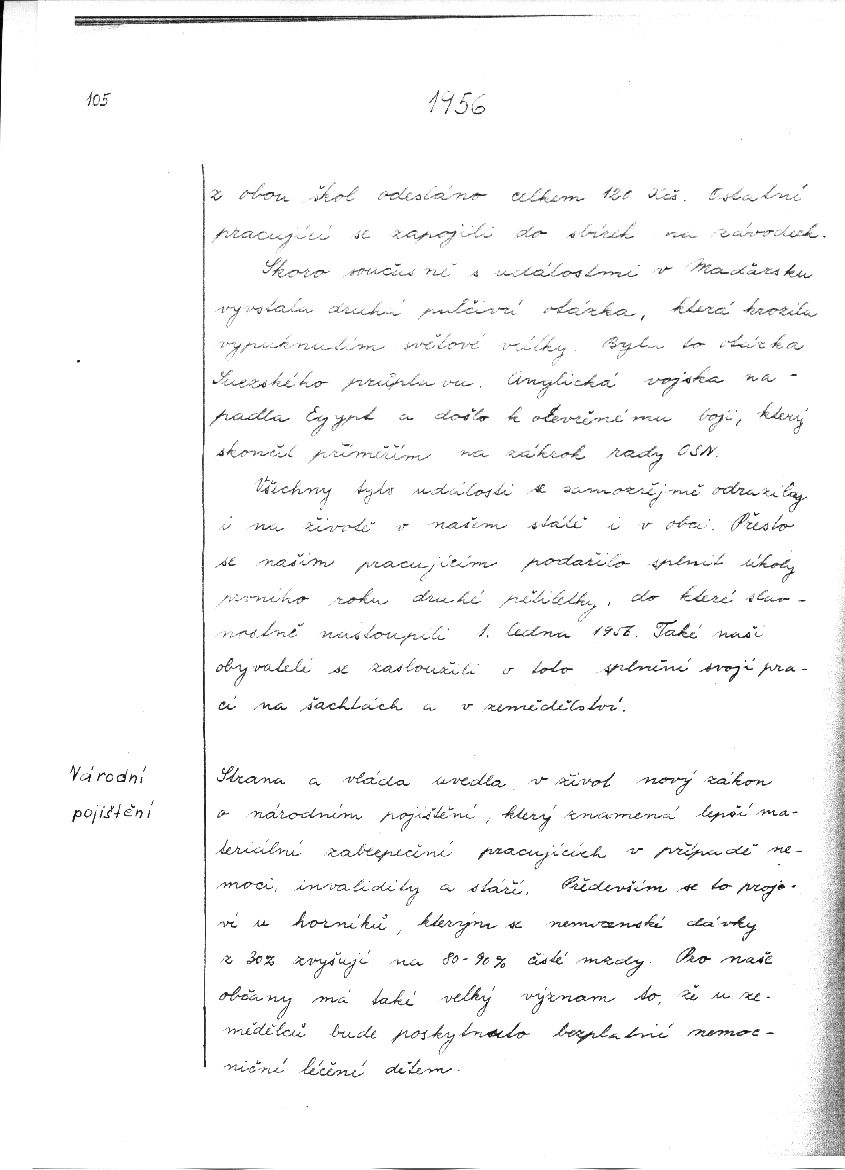 105
1956
z obou škol odesláno celkem 120 Kčs. Ostatní
pracující se zapojili do sbírek na závodech.
Skoro současně s událostmi v Maďarsku
vyvstala druhá palčivá otázka, která hrozila
vypuknutím světové války. Byla to otázka
Suezského průplavu. Anglická vojska na-
padla Egypt a došlo k otevřenému boji, který
skončil příměřím na zákrok rady OSN.
Všechny tyto události se samozřejmě odrazily
i na životě v našem státě i v obci. Přesto
se našim pracujícím podařilo splnit úkoly
prvního roku druhé pětiletky, do které slav-
nostně nastoupili 1. ledna 1956. Také naši
obyvatelé se zasloužili o toto splnění svojí pra-
cí na šachtách a v zemědělství.
Národní
pojištění
Strana a vláda uvedla v život nový zákon
o národním pojištění, který znamená lepší ma-
teriální zabezpečení pracujících v případě ne-
moci, invalidity a stáří. Především se to proje-
ví u horníků, kterým se nemocenské dávky
z 30% zvyšují na 80-90% čisté mzdy. Pro naše
občany má také velký význam to, že u ze-
mědělců bude poskytnuto bezplatné nemoc-
niční léčení dětem.